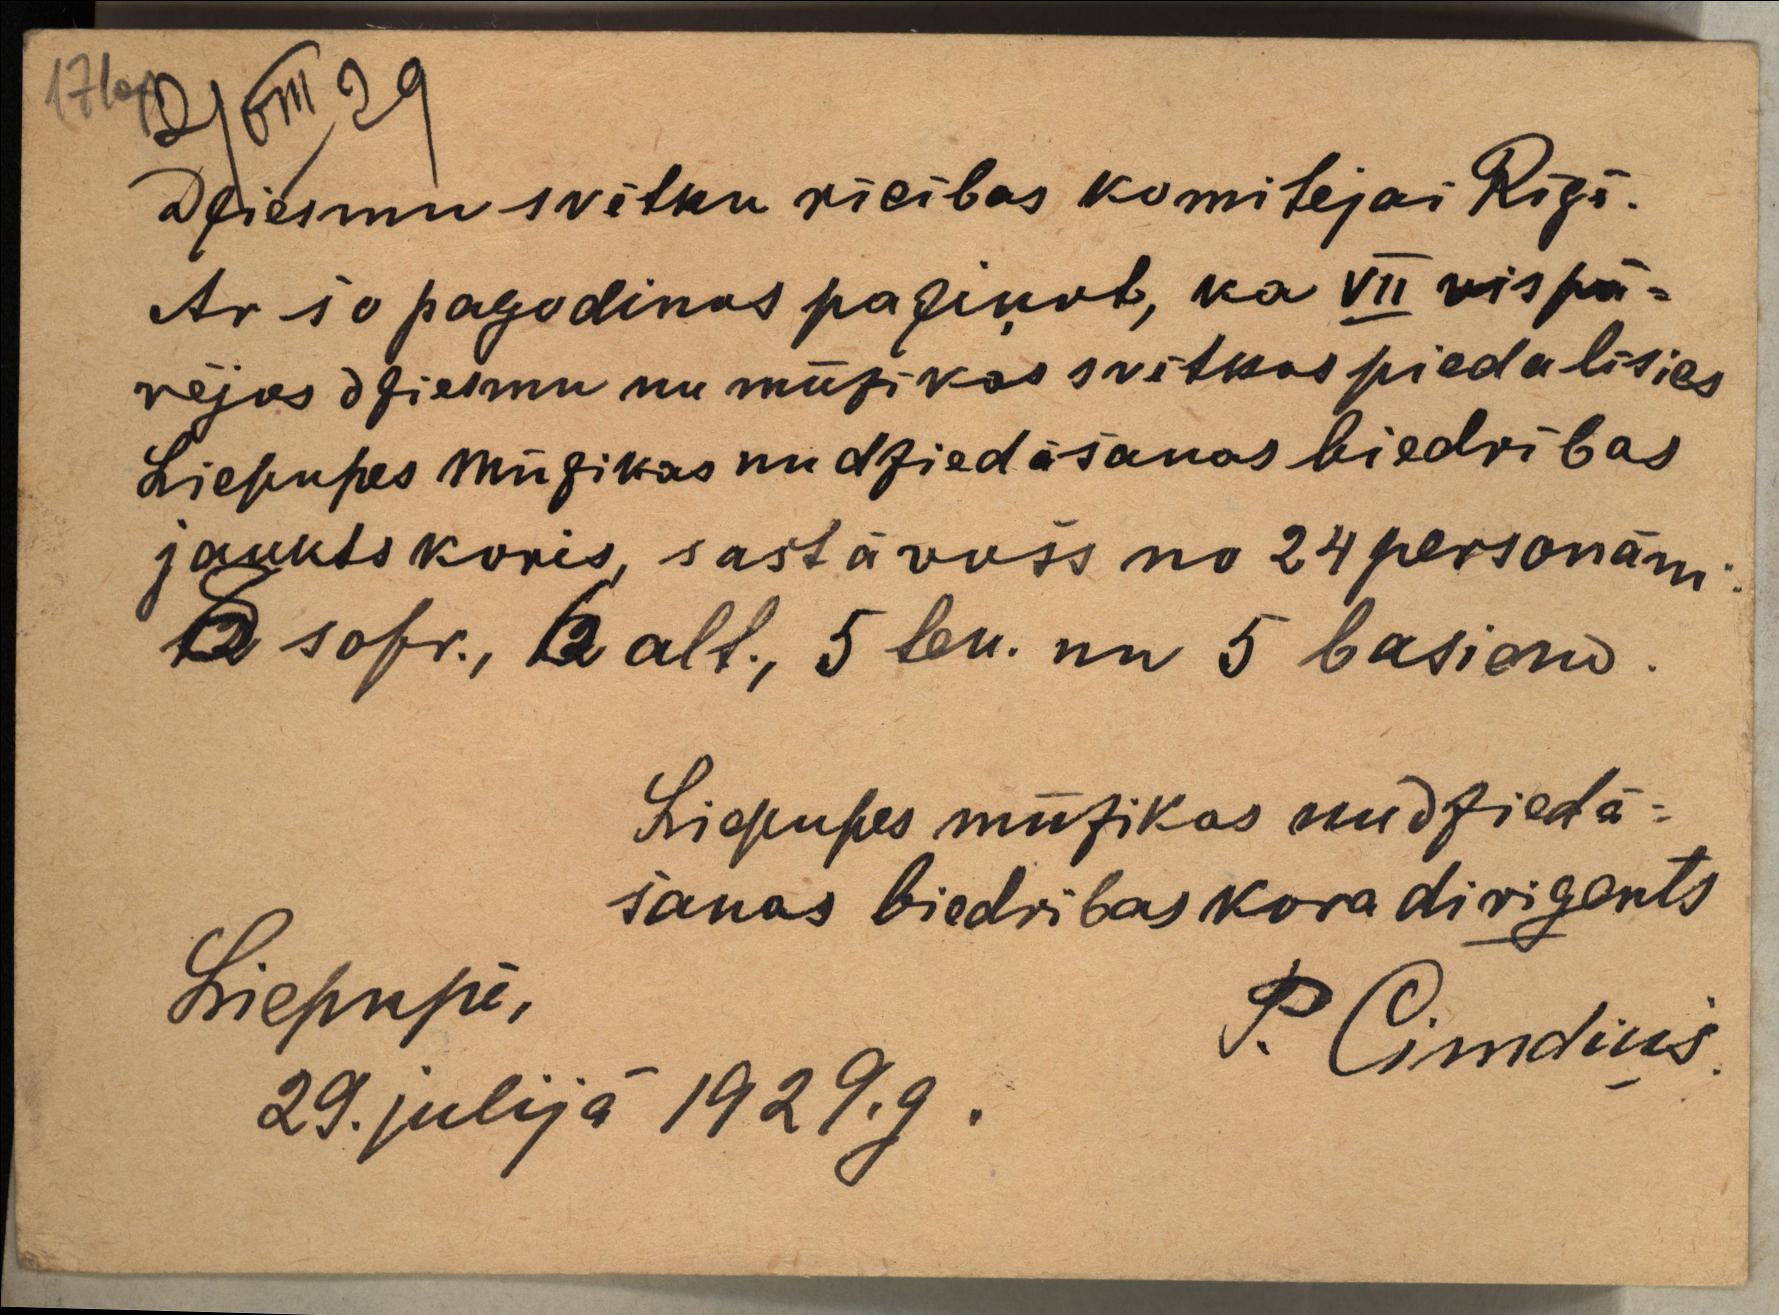 2/VIII 29
Dziesmu svētku rīcības komitejai Rīgā.
Ar šo pagodinos paziņot, ka VII vispā=
rējos dziesmu un mūzikas svētkos piedalīsies
Liepupes Mūzikas un dziedāšanas biedrības
jaukts koris, sastāvošs no 24 personām:
sopr., alt., 5 ten. un 5 basiem.
Liepupes mūzikas un dziedā=
šanas biedrības kora dirigents
P. Cimdiņš.
Liepupē,
29. julijā 1929. g.